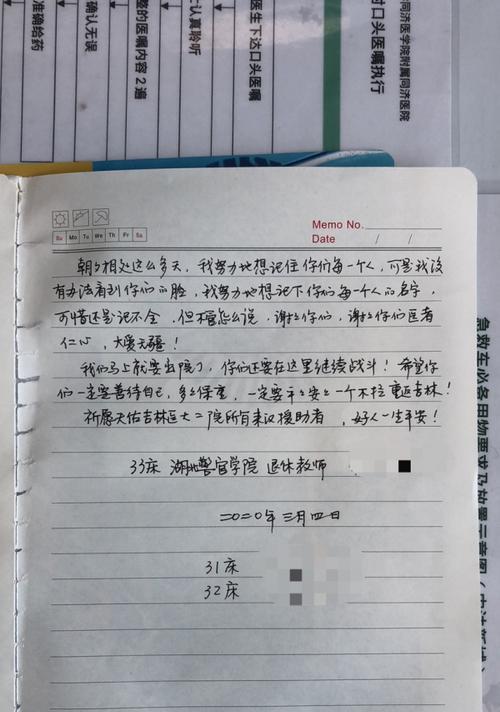 同济医学院附属同济医院
时口头医嘱执行
医生下达口头医嘱
认真聆听
整的医嘱内容2遍
确认无误
准确给药
Memo No.
Date / /
Su Mo Tu We Th Fr Sa
朝夕相处这么多天,我努力地想记住你们每一个人,可是我没
有办法看到你们的脸,我努力地想记下你们每一个人的名字,
可惜还是记不全,但不管怎么说,谢々你们,谢々你们医者
仁心,大爱无疆!
我们马上就要出院了,你们还要在这里继续战斗!希望你
们一定要善待自己,多々保重,一定要平々安々一个不拉重返吉林!
祈愿天佑吉林医大二院所有来汉援助者,好人一生平安!
33床 湖北警官学院 退休教师
二〇二〇年三月四日
31床
32床
急救车必备用物要求及放置示意图